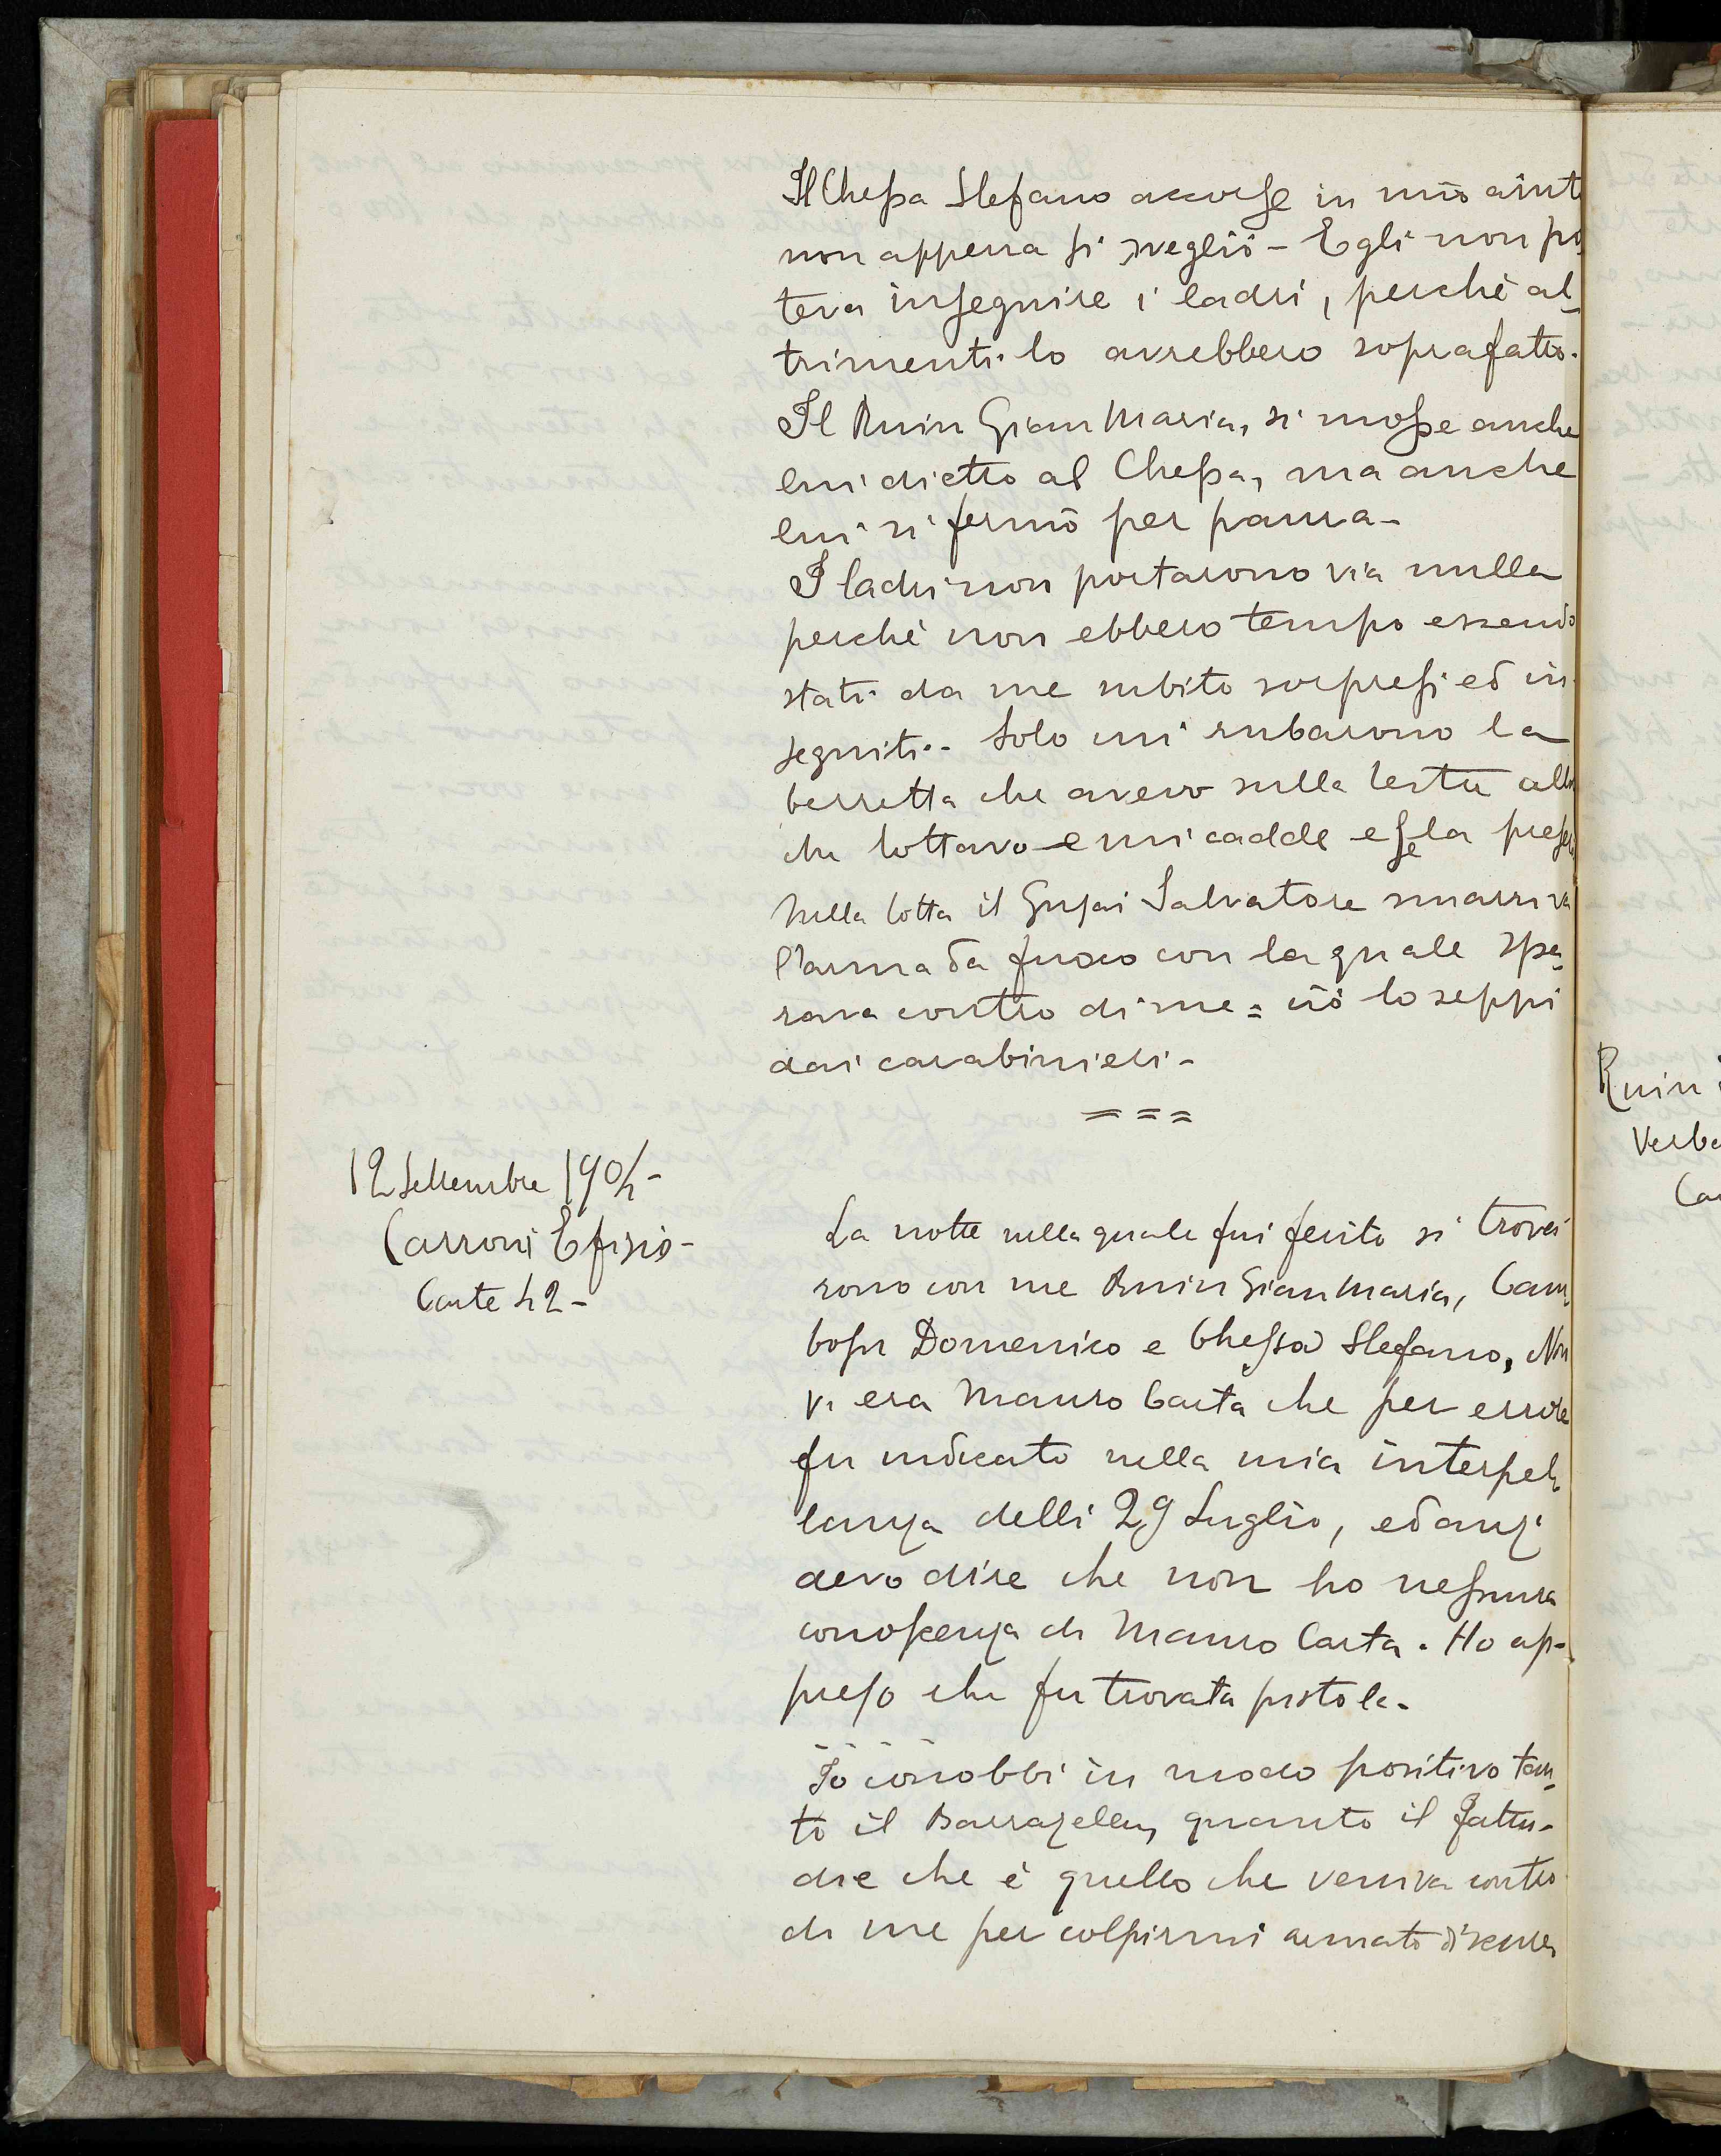 Il Chessa Stefano accorse in mio aiuto
non appena si svegliò - Egli non po
teva inseguire i ladri, perchè al
trimenti lo avrebbero soprafatto.
Il Ruiu Gian Maria, si mosse anche
lui dietto al Chessa, ma anche
lui si fermò per paura -
I ladri non portarono via nulla
perchè non ebbero tempo essendo
stati da me subito sorpresi ed in
seguiti - Solo mi rubarono la
berretta che avevo sulla testa allor
che lottavo e mi cadde e se la presero
Nella lotta il Gusai Salvatore smarriva
l'arma da fuoco con la quale spa
rava contro di me = ciò lo seppi
dai carabinieri -
= = =
12 Settembre 1904 -
Carroni Efisio -
Carte 42 -
La notte nella quale fui ferito si trova
rono con me Ruiu Gian Maria, Cam
bosu Domenico e Chessa Stefano, Non
vi era Mauro Carta che per errore
fu indicato nella mia interpel
lanza delli 29 Luglio, ed anzi
devo dire che non ho nessuna
conoscenza di Mauro Carta. Ho ap-
preso che fu trovata pistola -
Io conobbi in modo positivo tan
to il Barrazellu, quanto il Fattu-
dre che è quello che veniva contro
di me per colpirmi armato di scure
Ruiu
Verba
Ca